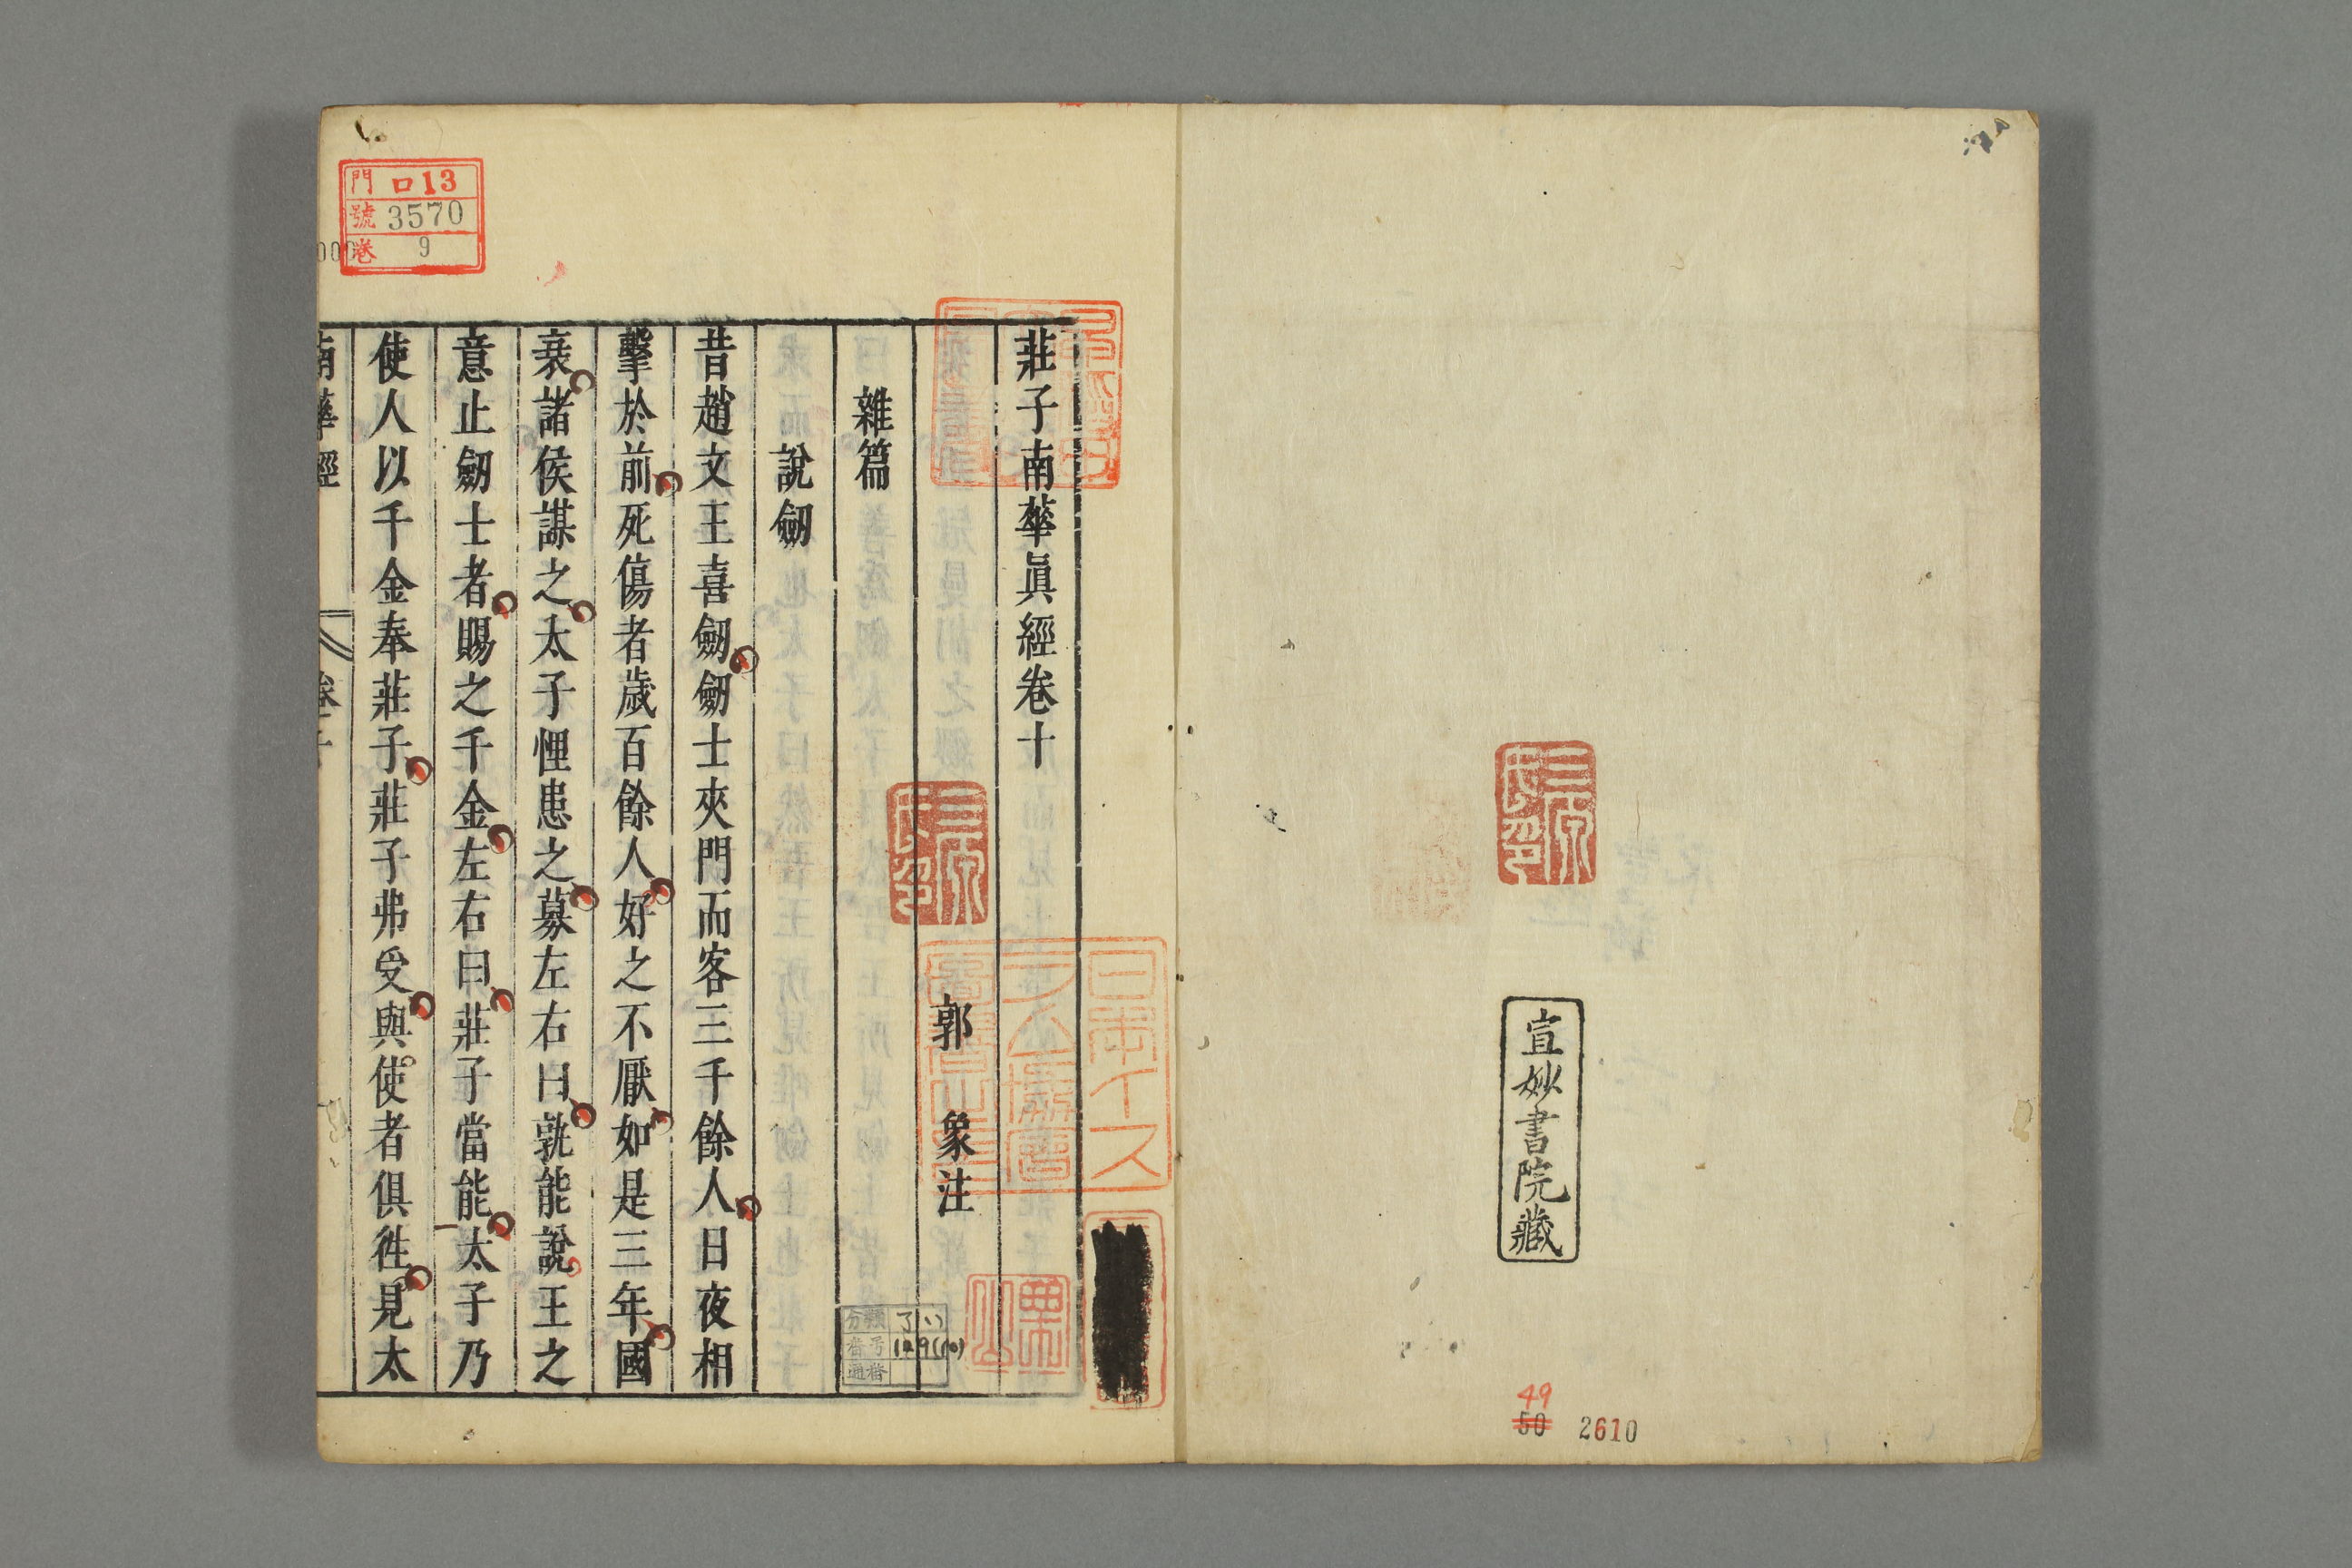 宣妙書院藏
49
50 2610
莊子南華眞經卷十
郭 象注
雜篇
說劒
昔趙文王喜劒劒士夾門而客三千餘人日夜相
擊於前死傷者歲百餘人好之不厭如是三年國
衰諸侯謀之太子悝患之募左右曰孰能說王之
意止劒士者賜之千金左右曰莊子當能太子乃
使人以千金奉莊子莊子弗受與使者俱徃見太
南華經 卷十
門 口13
號 3570
卷 9